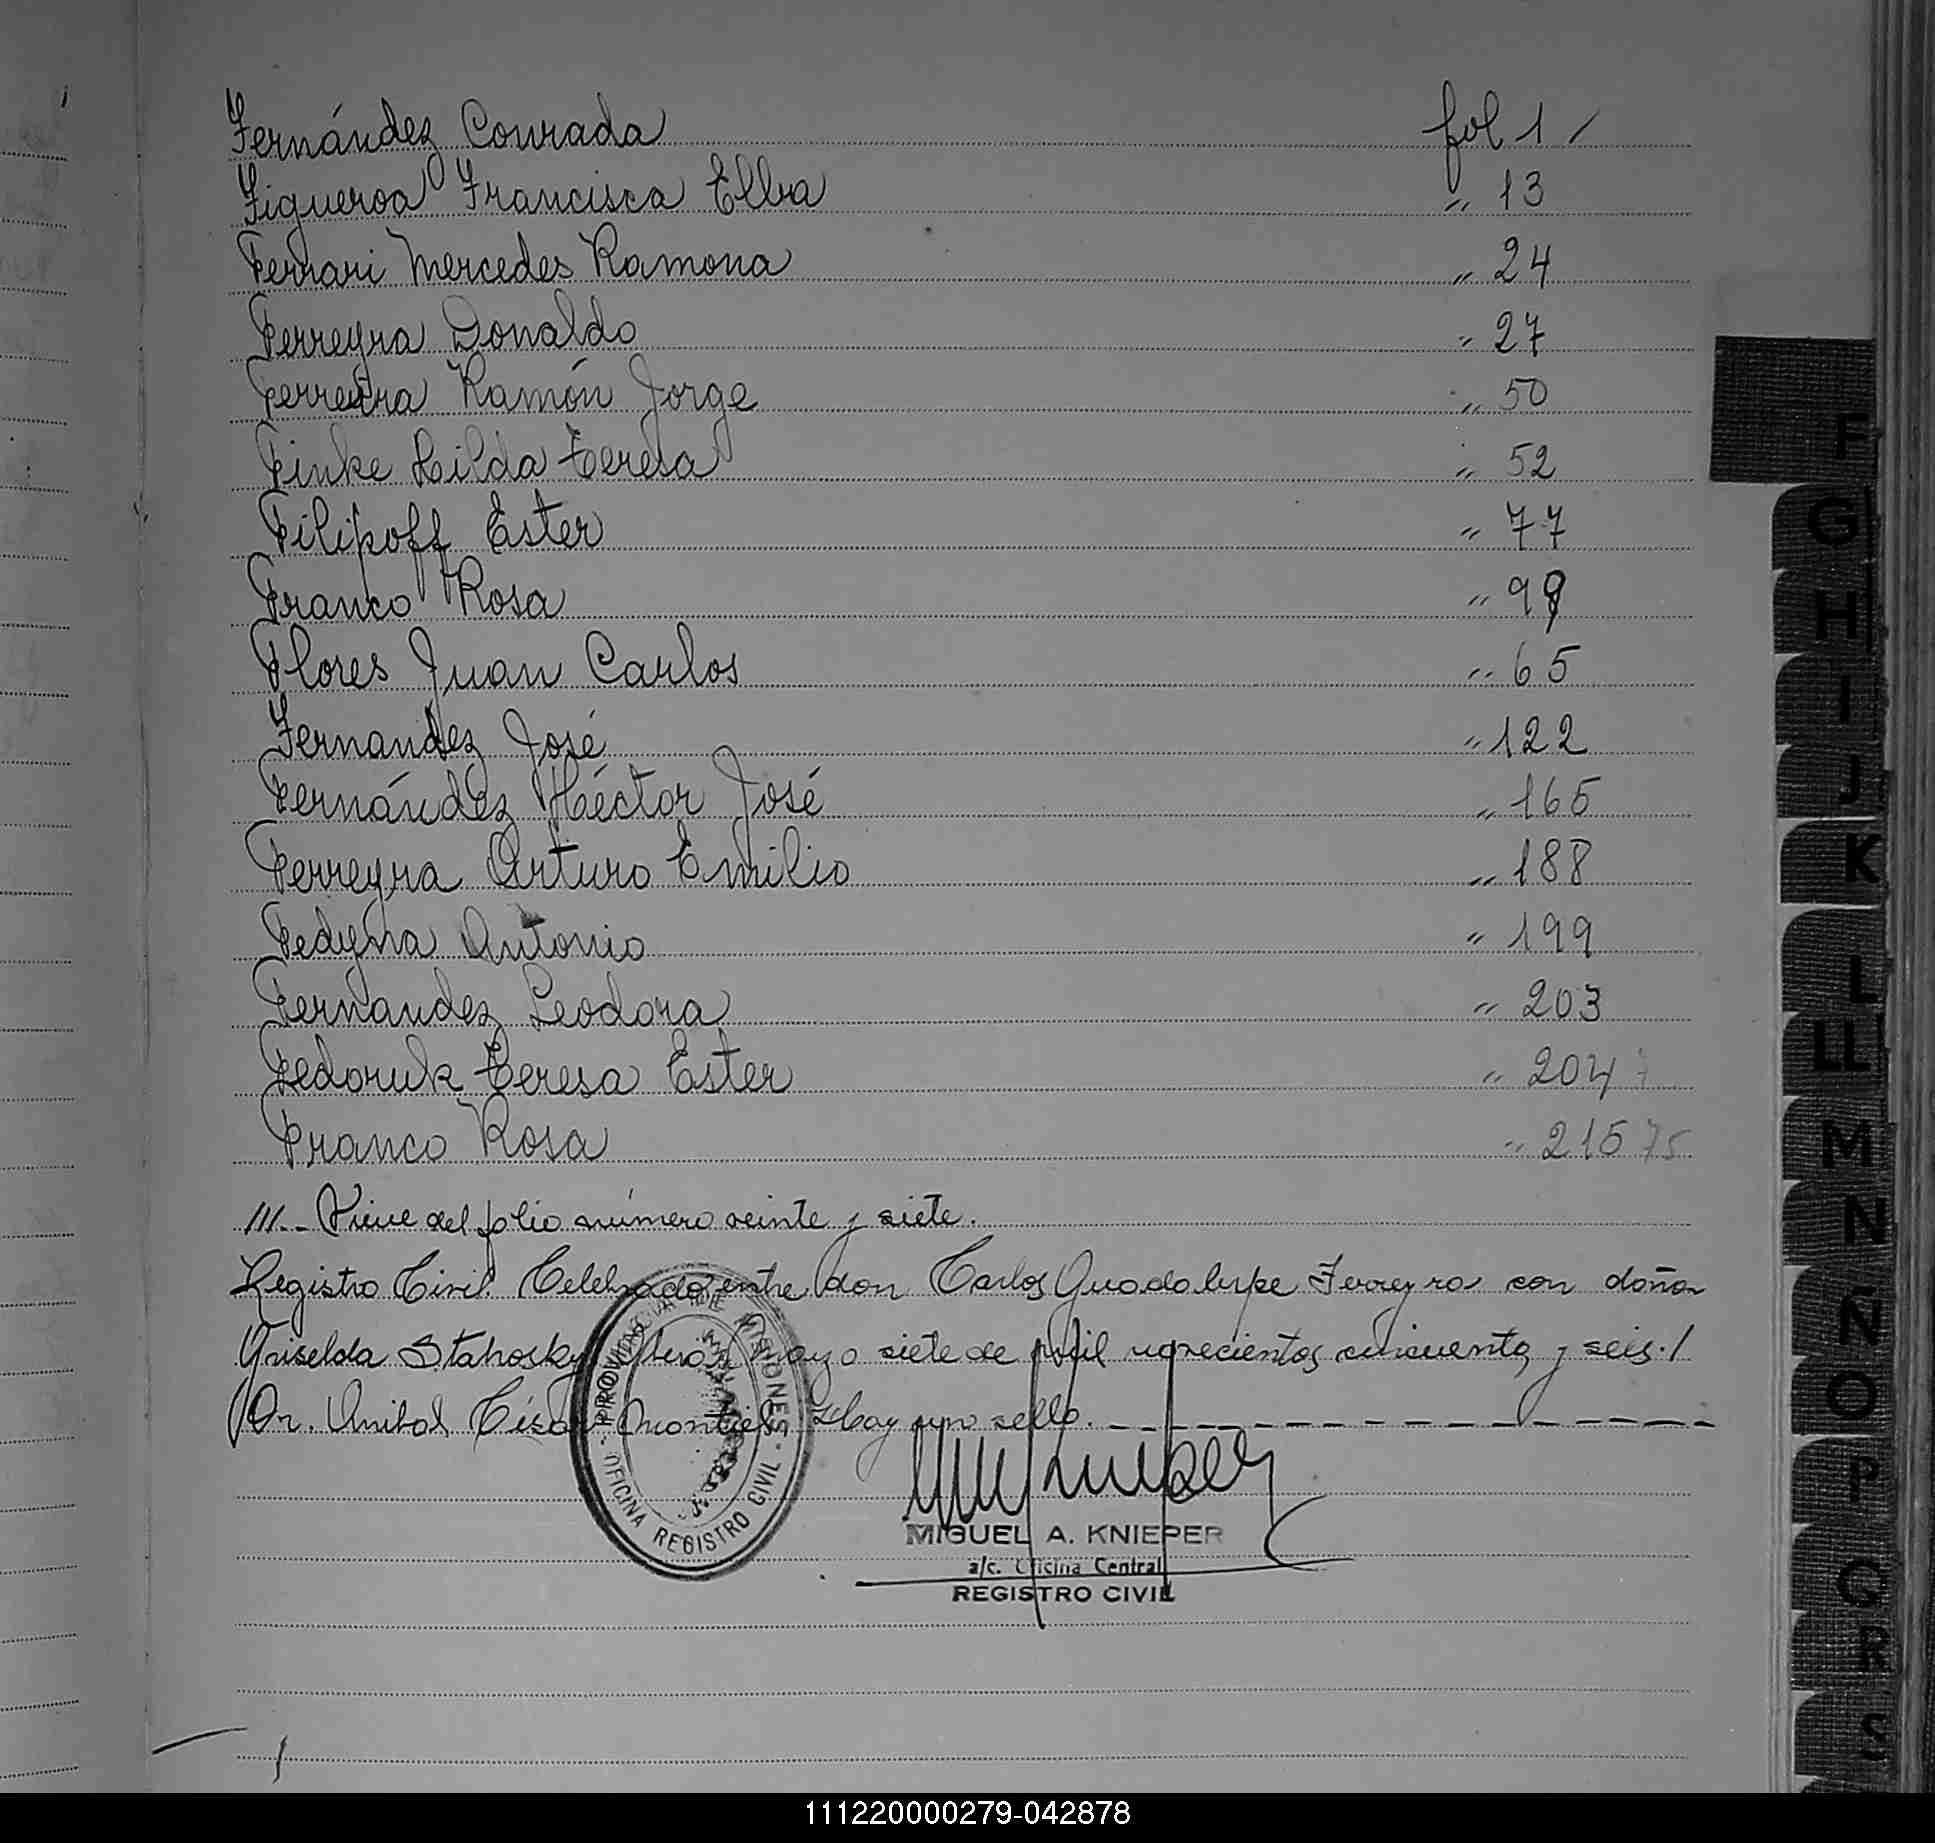 Fernández Conrada fol 1 /
Figueroa Francisca Elba " 13
Ferrari Mercedes Ramona " 24
Ferreyra Donaldo " 27
Ferreira Ramón Jorge " 50
Finke Hilda Teresa " 52
Filipoff Ester " 77
Franco Rosa " 99
Flores Juan Carlos " 65
Fernandez José " 122
Fernández Héctor José " 165
Ferreyra Arturo Emilio " 188
Fedyna Antonio " 199
Fernandez Leodora " 203
Fedoruk Teresa Ester " 204
Franco Rosa " 215 75
///.- Viene del folio número veinte y siete.
Registro Civil. Celebrado entre don Carlos Guadalupe Ferreyra con doña
Griselda Stahosky. Mayo siete de mil novecientos cincuenta y seis./
Dr. Anibal César Montiel. Hay un sello.
PROVINCIA DE MISIONES
- OFICINA REGISTRO CIVIL -
MIGUEL A. KNIEPER
a/c. Oficina Central
REGISTRO CIVIL
F
G
H
I
J
K
L
LL
M
N
Ñ
O
P
Q
R
S
111220000279-042878